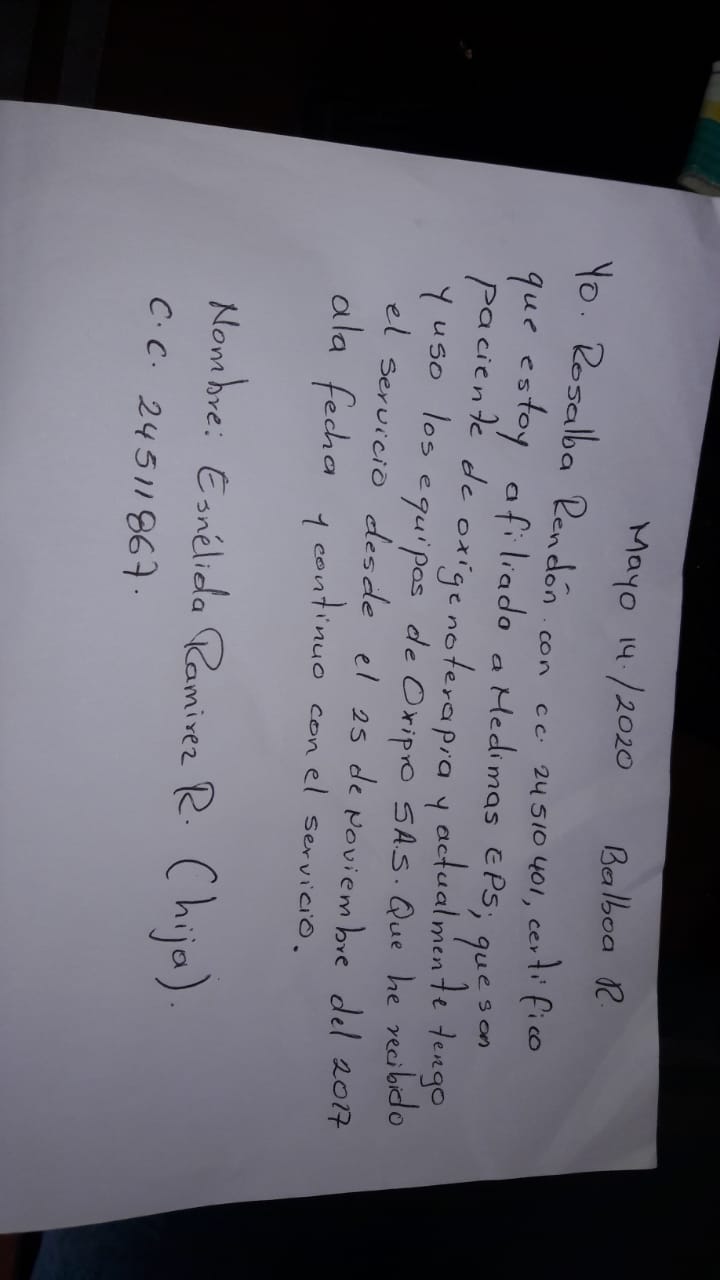 Mayo 14./2020 Balboa R.
Yo. Rosalba Rendón. con cc. 24510401, certifico
que estoy afiliada a Medimas EPS; que son
paciente de oxigenoterapia y actualmente tengo
y uso los equipos de Oxipro S.A.S. Que he recibido
el servicio desde el 25 de Noviembre del 2017
ala fecha y continuo con el servicio.
Nombre: Esnélida Ramirez R. (hija).
C.C. 24511867.